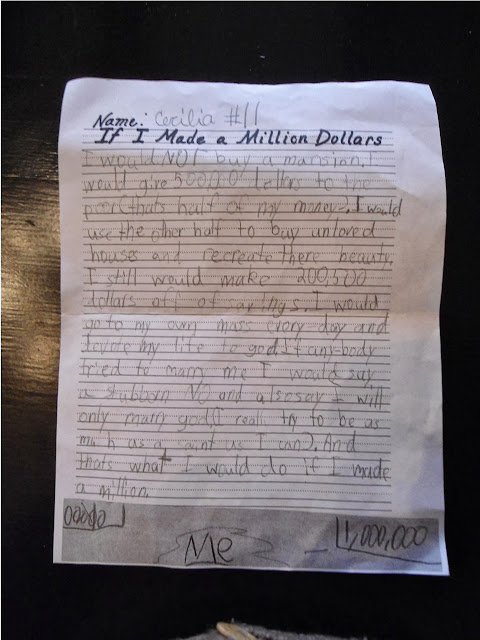 Name: Cecilia #11
If I Made a Million Dollars
I would NOT buy a mansion. I
would give 500,000 dollars to the
poor (thats half of my money). I would
use the other half to buy unloved
houses and recreate there beauty.
I still would make 200,500
dollars off of savings. I would
go to my own mass every day and
devote my life to god. If any-body
tried to marry me I would say
a stubborn NO and also say I will
only marry god. (I really try to be as
much as a saint as I can). And
thats what I would do if I made
a million.
Me
1,000,000